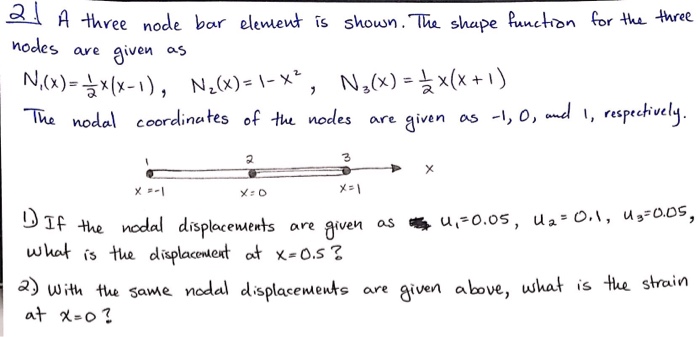 2] A three node bar element is shown. The shape function for the three
nodes are given as
N₁(x)=½x(x-1), N₂(x)=1-x², N₃(x)=½x(x+1)
The nodal coordinates of the nodes are given as -1, 0, and 1, respectively.
1 2 3
x
x=-1 x=0 x=1
1) If the nodal displacements are given as u₁=0.05, u₂=0.1, u₃=0.05,
what is the displacement at x=0.5?
2) With the same nodal displacements are given above, what is the strain
at x=0?